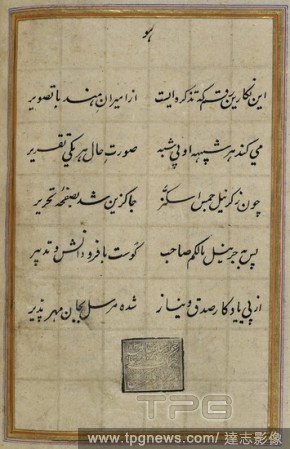 هو
این نگارین رقم که تذکره ایست از امیران هند با تصویر
می کند هر شبیهه او بی شبه صورت حال هر یکی تفسیر
چون ز کرنیل جمس اسکنر جاگزین شد بصفحهٔ تحریر
پس به جرنیل مالکم صاحب کوست با فر و دانش و تدبیر
از پی یادگار صدق و نیاز شده مرسل بجان مهر پذیر
TPG
www.tpgnews.com/ 達志影像